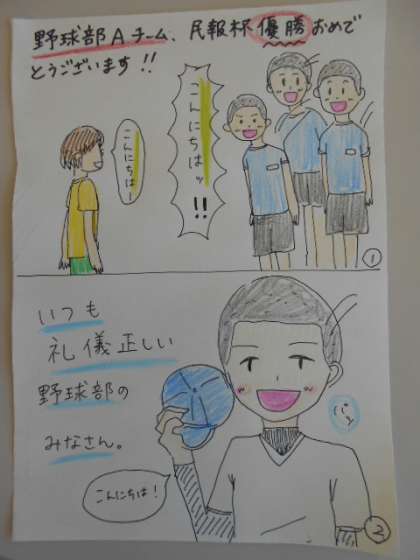 野球部Aチーム、民報杯優勝おめで
とうございます!!
こんにちはッ!!
こんにちはー
①
いつも
礼儀正しい
野球部の
みなさん。
こんにちは!
②